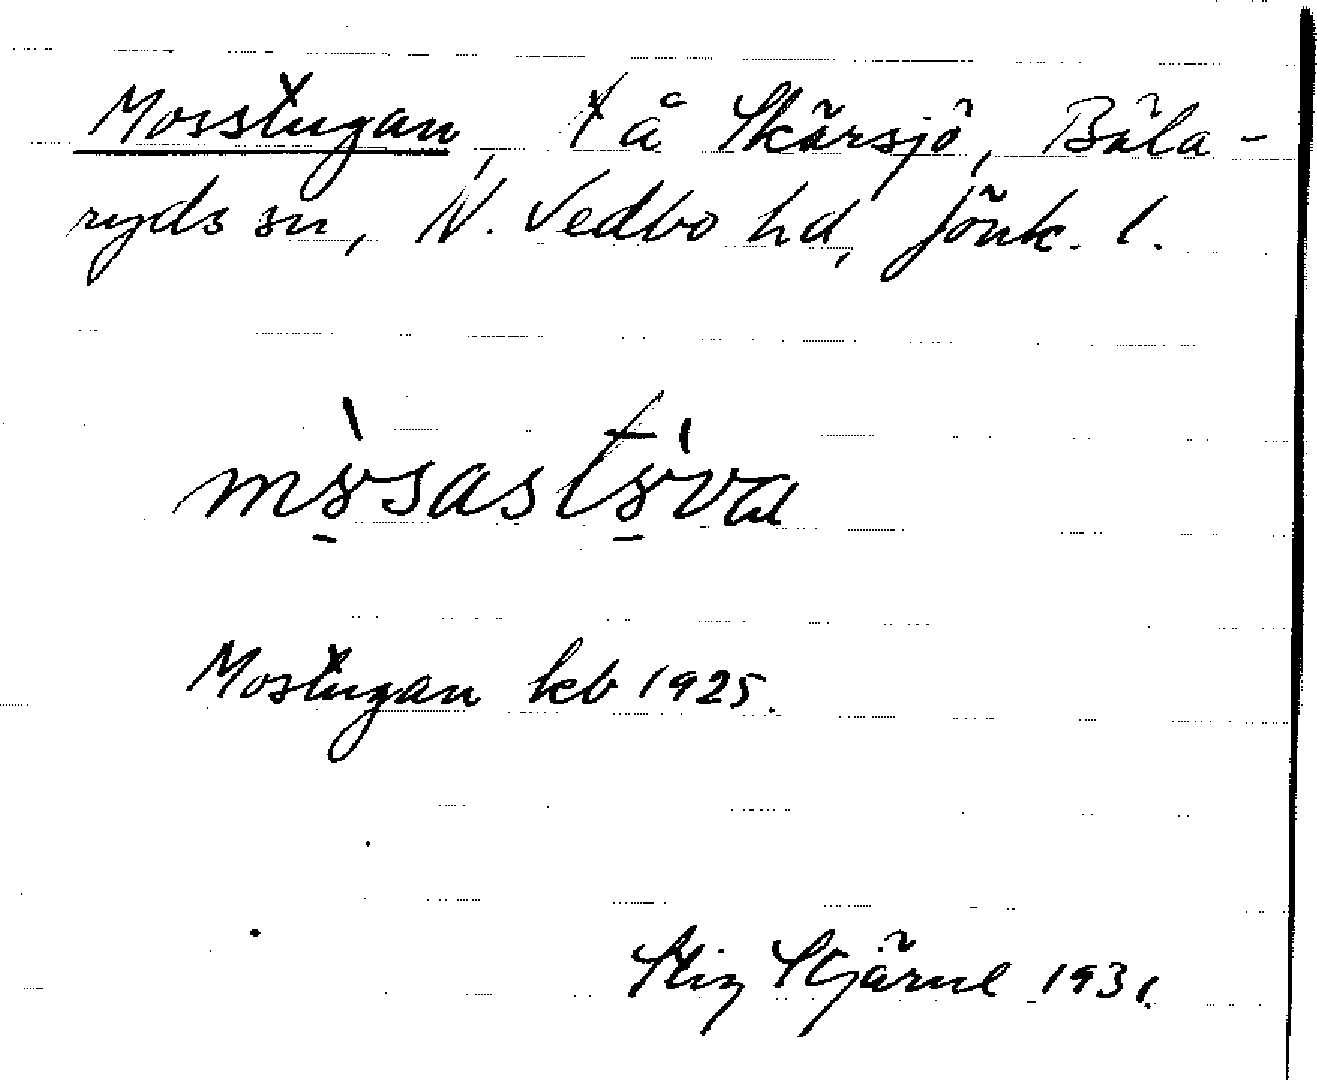 Mosstugan, t å Skärsjö, Bäla-
ryds sn, N. Vedbo hd, Jönk. l.
Mostugan kb 1925.
Stig Stjärne 1931.